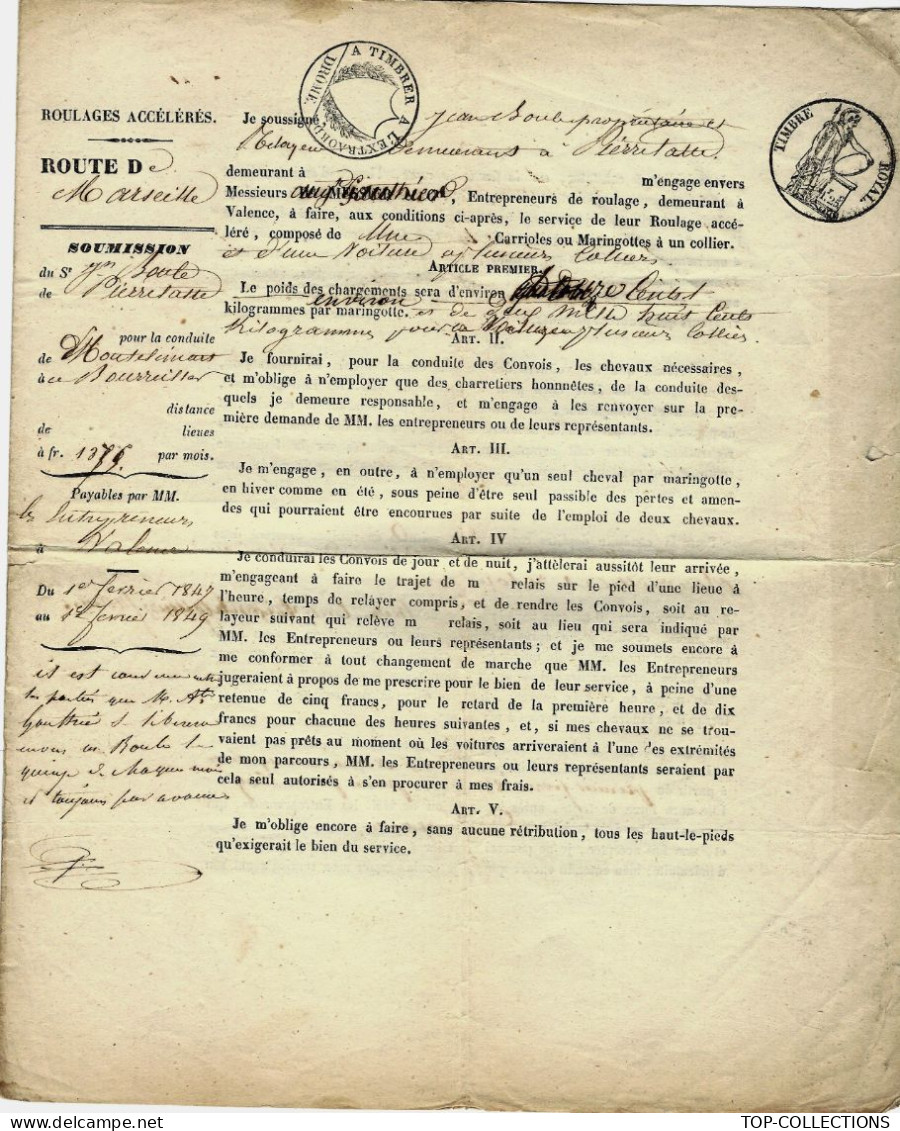 A TIMBRER A L'EXTRAORDRE
DROME
TIMBRE ROYAL
ROULAGES ACCÉLÉRÉS.
ROUTE De
Marseille
SOUMISSION
du Sr Jn Boule
de Pierrelatte
pour la conduite
de Montelimart
à
distance
de lieues
à fr. par mois.
Payables par MM.
les Entrepreneurs
à Valence
Du 1er fevrier 1847
au 1er fevrier 1849
il est convenu entre
les parties que M. Ate
Gauthier
envers m Boule le
quinze de chaque mois
et toujours par avance
Je soussigné Jean Boule propriétaire et
demeurant à Pierrelatte.
demeurant à m'engage envers
Messieurs , Entrepreneurs de roulage, demeurant à
Valence, à faire, aux conditions ci-après, le service de leur Roulage accé-
léré, composé de Une Carrioles ou Maringottes à un collier.
et d'une Voiture a plusieurs Colliers
ARTICLE PREMIER.
Le poids des chargements sera d'environ Cents
environ
kilogrammes par maringotte. et de deux mille huit Cents
Kilogrammes pour la Voiture a plusieurs Colliers
ART. II.
Je fournirai, pour la conduite des Convois, les chevaux nécessaires,
et m'oblige à n'employer que des charretiers honnnêtes, de la conduite des-
quels je demeure responsable, et m'engage à les renvoyer sur la pre-
mière demande de MM. les entrepreneurs ou de leurs représentants.
ART. III.
Je m'engage, en outre, à n'employer qu'un seul cheval par maringotte,
en hiver comme en été, sous peine d'être seul passible des pertes et amen-
des qui pourraient être encourues par suite de l'emploi de deux chevaux.
ART. IV
Je conduirai les Convois de jour et de nuit, j'attèlerai aussitôt leur arrivée,
m'engageant à faire le trajet de m relais sur le pied d'une lieue à
l'heure, temps de relayer compris, et de rendre les Convois, soit au re-
layeur suivant qui relève m relais, soit au lieu qui sera indiqué par
MM. les Entrepreneurs ou leurs représentants; et je me soumets encore à
me conformer à tout changement de marche que MM. les Entrepreneurs
jugeraient à propos de me prescrire pour le bien de leur service, à peine d'une
retenue de cinq francs, pour le retard de la première heure, et de dix
francs pour chacune des heures suivantes, et, si mes chevaux ne se trou-
vaient pas prêts au moment où les voitures arriveraient à l'une des extrémités
de mon parcours, MM. les Entrepreneurs ou leurs représentants seraient par
cela seul autorisés à s'en procurer à mes frais.
ART. V.
Je m'oblige encore à faire, sans aucune rétribution, tous les haut-le-pieds
qu'exigerait le bien du service.
TOP-COLLECTIONS